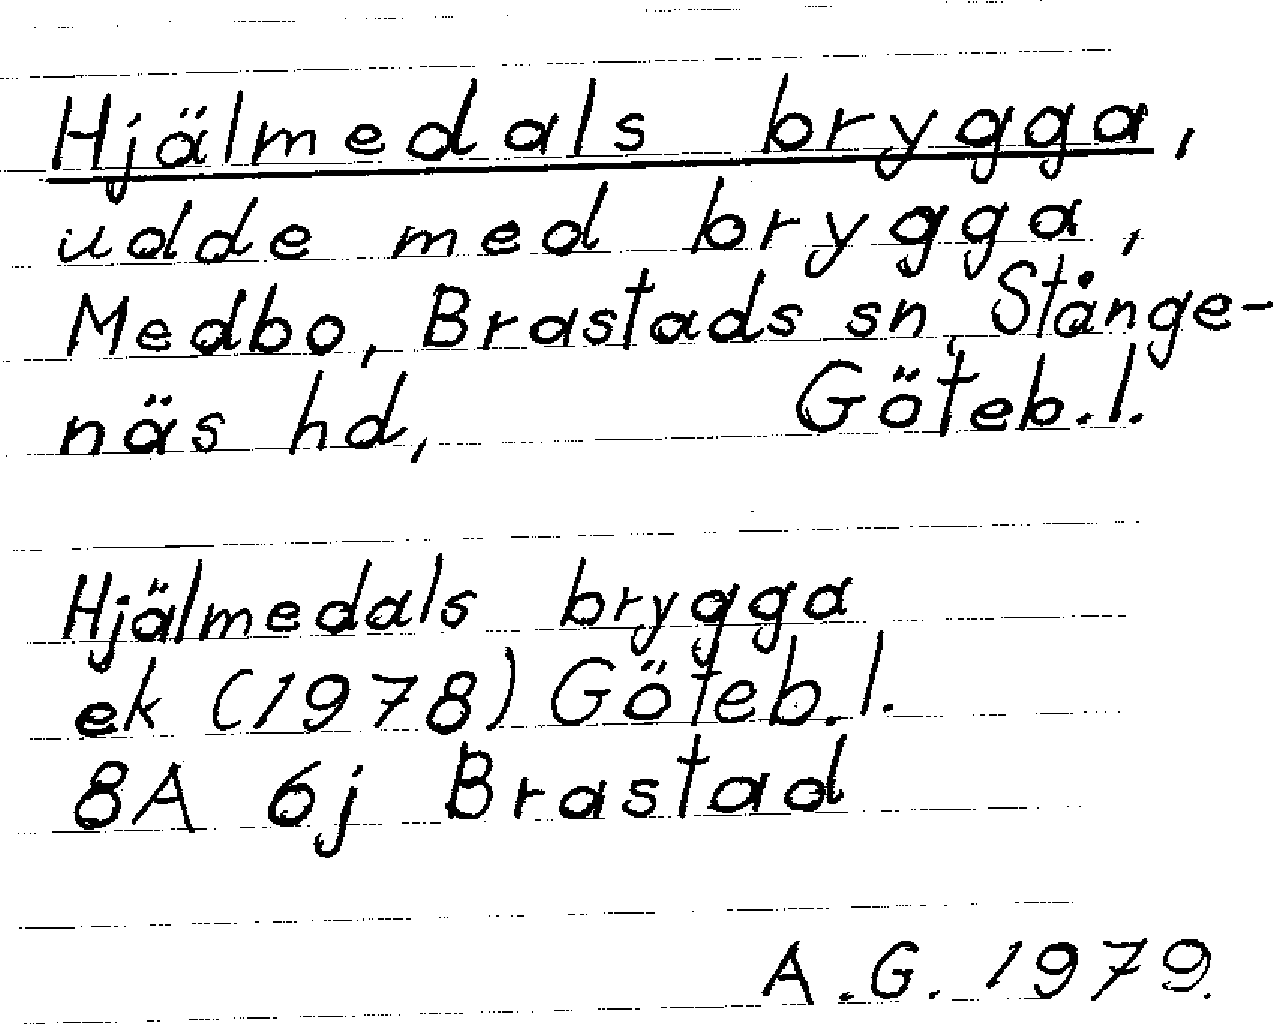 Hjälmedals brygga,
udde med brygga,
Medbo, Brastads sn, Stånge-
näs hd, Göteb.l.
Hjälmedals brygga
ek (1978) Göteb.l.
8A 6j Brastad
A.G. 1979.